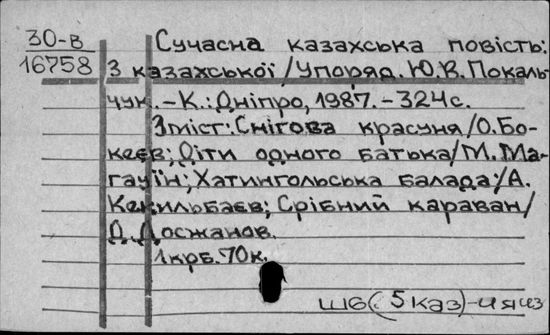 30-в
16758
Сучасна казахська повість:
З казахської/Упоряд. Ю.В.Покаль-
чук.-К.:Дніпро,1987.-324с.
Зміст:Снігова красуня/О.Бо-
кеєв;Діти одного батька/М.Ма-
гауїн;Хатингольська балада/А.
Кекильбаєв;Срібний караван/
Д.Досжанов.
1крб.70к.
Ш6(5каз)-4